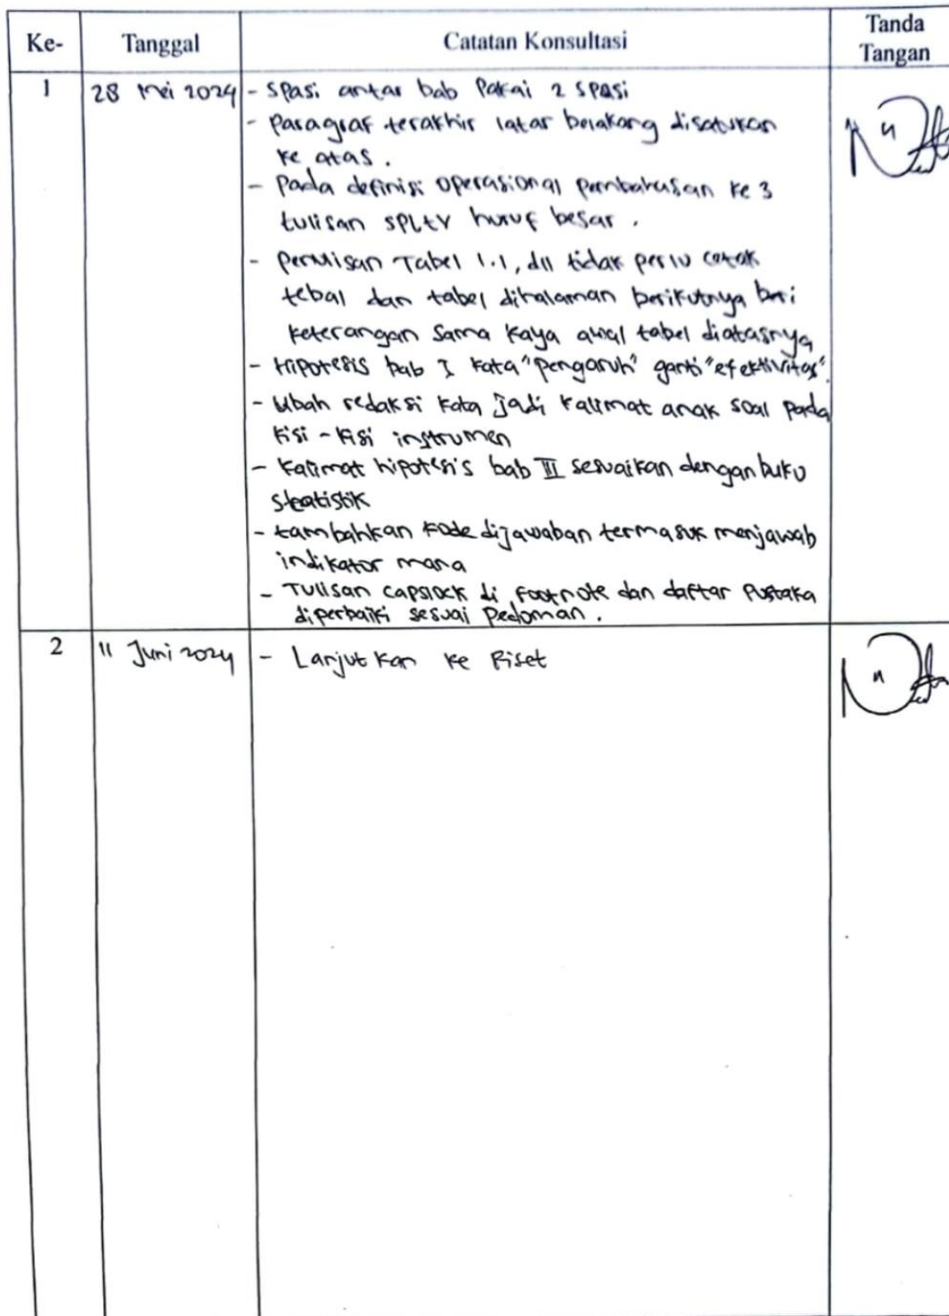 Ke- Tanggal Catatan Konsultasi Tanda Tangan
1 28 Mei 2024 - Spasi antar bab Pakai 2 spasi
- paragraf terakhir latar belakang disatukan
ke atas.
- Pada definisi operasional pembahasan ke 3
tulisan SPLTV huruf besar.
- penulisan Tabel 1.1, dll tidak perlu cetak
tebal dan tabel dihalaman berikutnya beri
keterangan sama kaya awal tabel diatasnya
- Hipotesis bab I kata "pengaruh" ganti "efektivitas".
- Ubah redaksi kata jadi kalimat anak soal pada
kisi-kisi instrumen
- Kalimat hipotesis bab III sesuaikan dengan buku
statistik
- tambahkan kode dijawaban termasuk menjawab
indikator mana
- Tulisan capslock di footnote dan daftar Pustaka
diperbaiki sesuai Pedoman.
2 11 Juni 2024 - Lanjutkan ke Riset